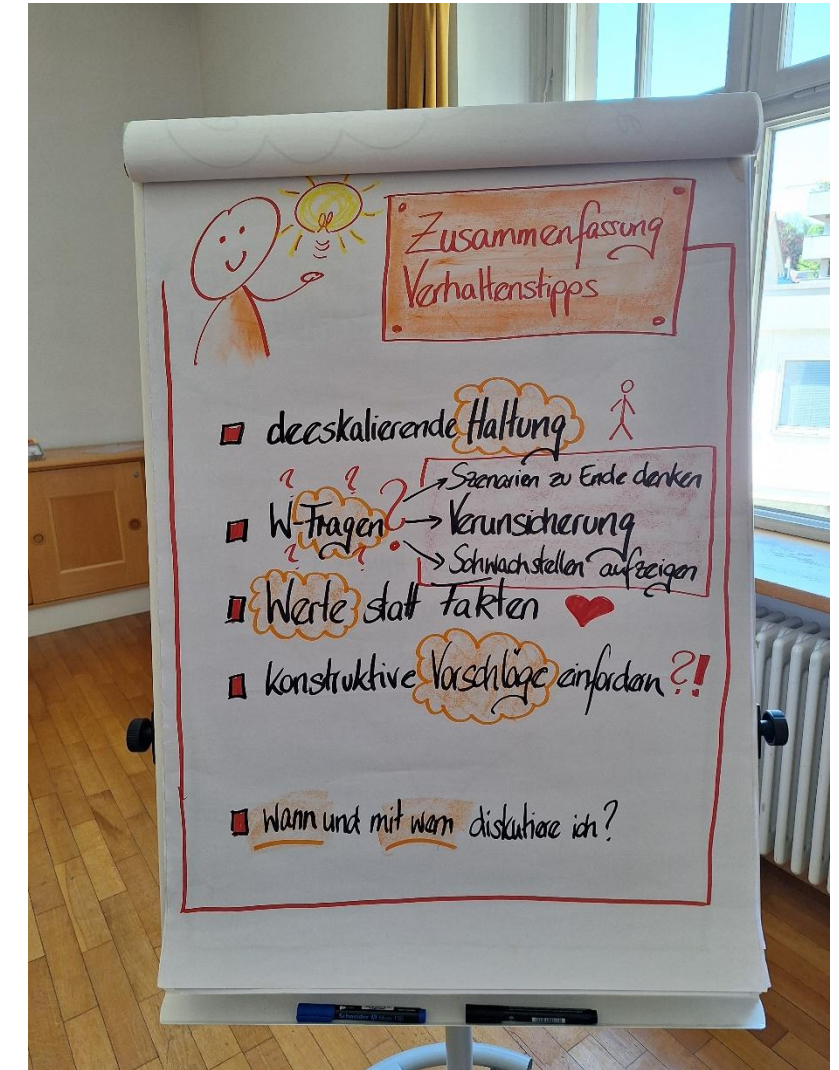 Zusammenfassung
Verhaltenstipps
deeskalierende Haltung
? ?
W-Fragen ?
→ Szenarien zu Ende denken
→ Verunsicherung
→ Schwachstellen aufzeigen
? ?
Werte statt Fakten
konstruktive Vorschläge einfordern ?!
wann und mit wem diskutiere ich?
Schneider